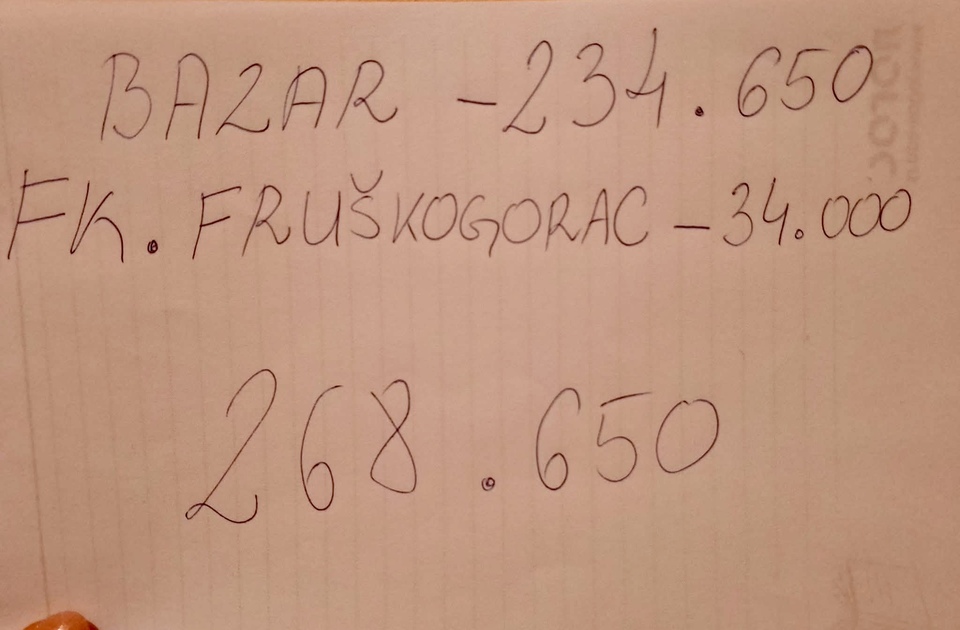 BAZAR - 234.650
FK. FRUŠKOGORAC - 34.000
268.650